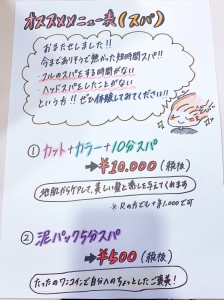 オススメメニュー表(スパ)
おまたせしました!!
今までありそうで無かった短時間スパ!!
・フルのスパをする時間がない
・ヘッドスパとしたことがない
という方!! ぜひ体験してみてください!!
① カット+カラー+10分スパ
→¥10.000(税抜)
地肌からケアして、美しい髪と癒しを与えてくれます
※Rの方でも+¥1.000で可
② 泥パック5分スパ
→¥500(税抜)
たったのワンコインで自分へのちょっとしたご褒美!